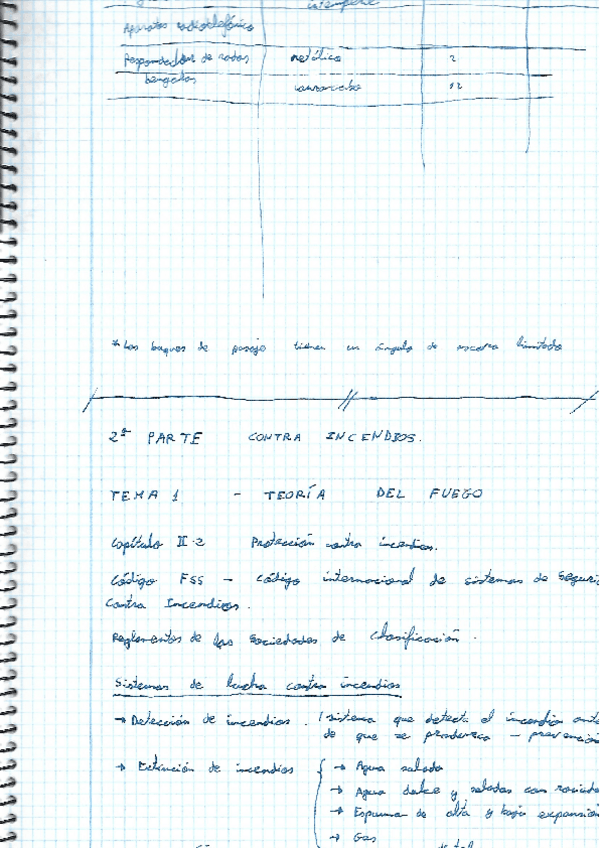 intemperie
Aparatos radiotelefónico
Respondedor de radar 2
bengalas 12
* Los buques de pasaje tienen un ángulo de escora limitado
2ª PARTE CONTRA INCENDIOS.
TEMA 1 - TEORÍA DEL FUEGO
Capítulo II-2 Protección contra incendios.
Código FSS - Código internacional de sistemas de Seguri
Contra Incendios.
Reglamentos de las Sociedades de Clasificación.
Sistemas de lucha contra incendios
→ Detección de incendios. (sistema que detecta el incendio ante
de que se produzca - prevención
→ Extinción de incendios { → Agua salada
→ Agua dulce y saladas con rociado
→ Espuma de alta y baja expansión
→ Gas